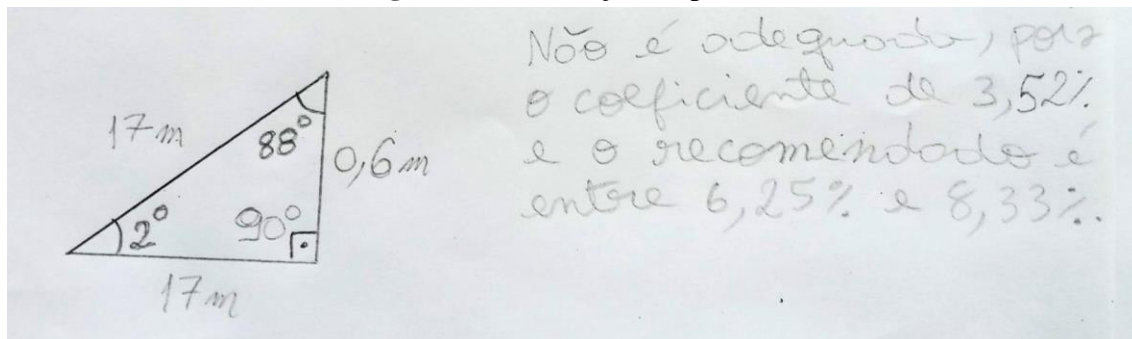 17 m
88°
0,6 m
2°
90°
17 m
Não é adequado, pois
o coeficiente de 3,52%
e o recomendado é
entre 6,25% e 8,33%.